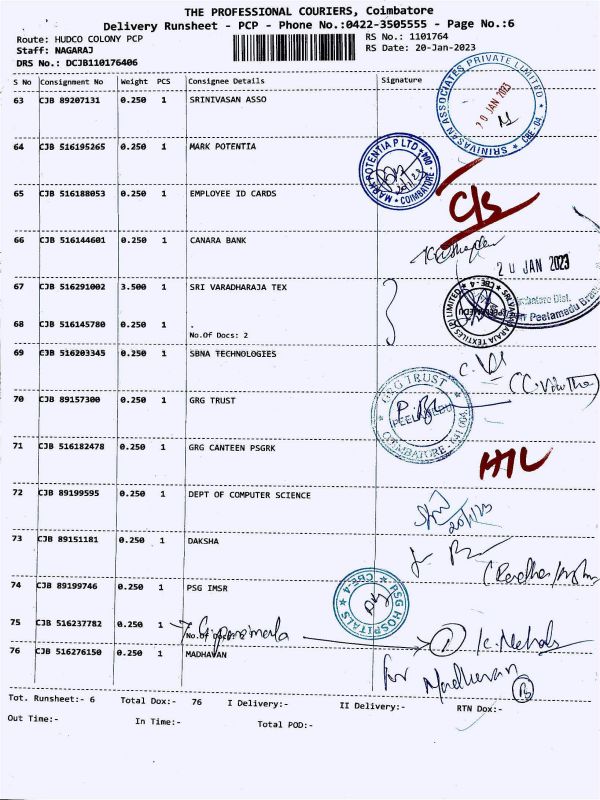 THE PROFESSIONAL COURIERS, Coimbatore
Delivery Runsheet - PCP - Phone No.:0422-3505555 - Page No.:6
Route: HUDCO COLONY PCP RS No.: 1101764
Staff: NAGARAJ RS Date: 20-Jan-2023
DRS No.: DCJB110176406
S No Consignment No Weight PCS Consignee Details Signature
63 CJB 89207131 0.250 1 SRINIVASAN ASSO
SRINIVASAN ASSOCIATES PRIVATE LIMITED CBE-04.
20 JAN 2023
64 CJB 516195265 0.250 1 MARK POTENTIA
MARK POTENTIA P LTD COIMBATORE - 004
65 CJB 516188053 0.250 1 EMPLOYEE ID CARDS
C/S
66 CJB 516144601 0.250 1 CANARA BANK
20 JAN 2023
67 CJB 516291002 3.500 1 SRI VARADHARAJA TEX
Peelamedu
68 CJB 516145780 0.250 1 .
No.Of Docs: 2
69 CJB 516203345 0.250 1 SBNA TECHNOLOGIES
70 CJB 89157300 0.250 1 GRG TRUST
GRG TRUST PEELAMEDU COIMBATORE - 641 004.
71 CJB 516182478 0.250 1 GRG CANTEEN PSGRK
72 CJB 89199595 0.250 1 DEPT OF COMPUTER SCIENCE
20/1/23
73 CJB 89151181 0.250 1 DAKSHA
74 CJB 89199746 0.250 1 PSG IMSR
PSG HOSPITALS CBE-4
75 CJB 516237782 0.250 1
No.Of
76 CJB 516276150 0.250 1 MADHAVAN
for Madhavan
Tot. Runsheet:- 6 Total Dox:- 76 I Delivery:- II Delivery:- RTN Dox:-
Out Time:- In Time:- Total POD:-